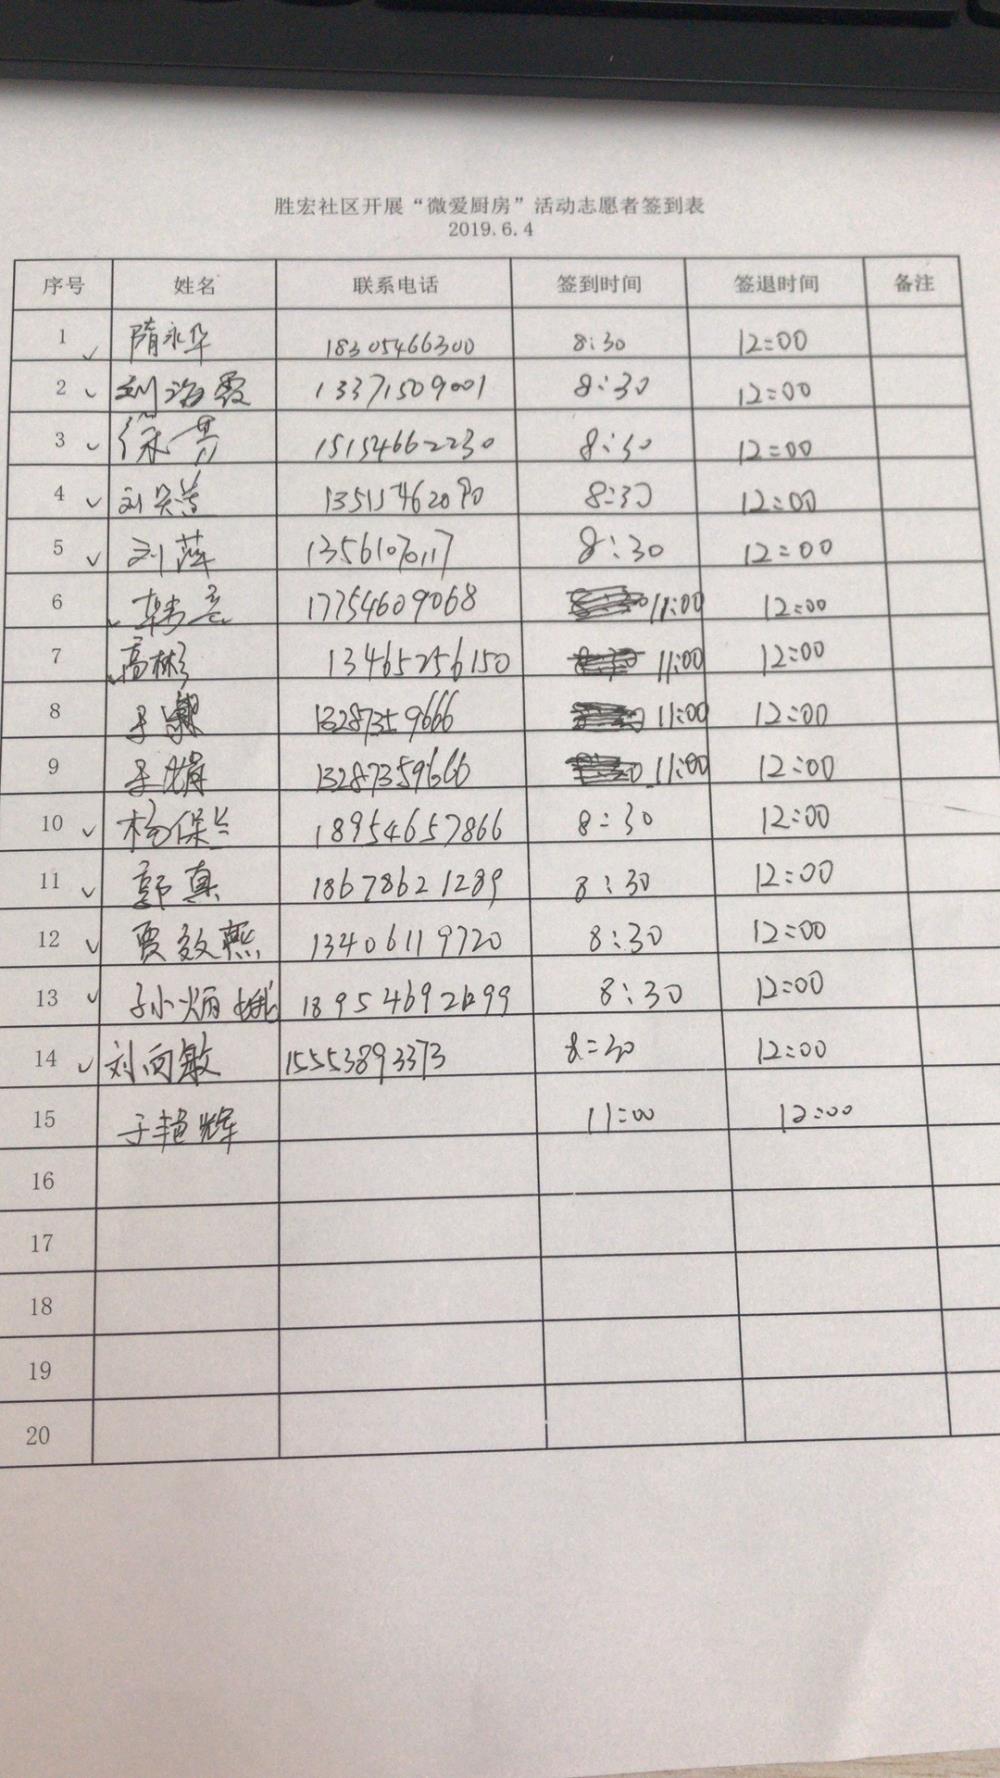 胜宏社区开展“微爱厨房”活动志愿者签到表
2019.6.4
序号 姓名 联系电话 签到时间 签退时间 备注
1 隋永华 18305466300 8:30 12:00
2 刘海霞 13371509001 8:30 12:00
3 徐男 15154662230 8:30 12:00
4 刘 8:30 12:00
5 刘萍 8:30 12:00
6 韩 17754609068 11:00 12:00
7 高彬 13465256150 11:00 12:00
8 11:00 12:00
9 13287359666 11:00 12:00
10 杨保兰 18954657866 8:30 12:00
11 郭真 18678621289 8:30 12:00
12 贾效燕 13406119720 8:30 12:00
13 孙小炳 8:30 12:00
14 刘向敏 15553893373 8:30 12:00
15 于艳辉 11:00 12:00
16
17
18
19
20